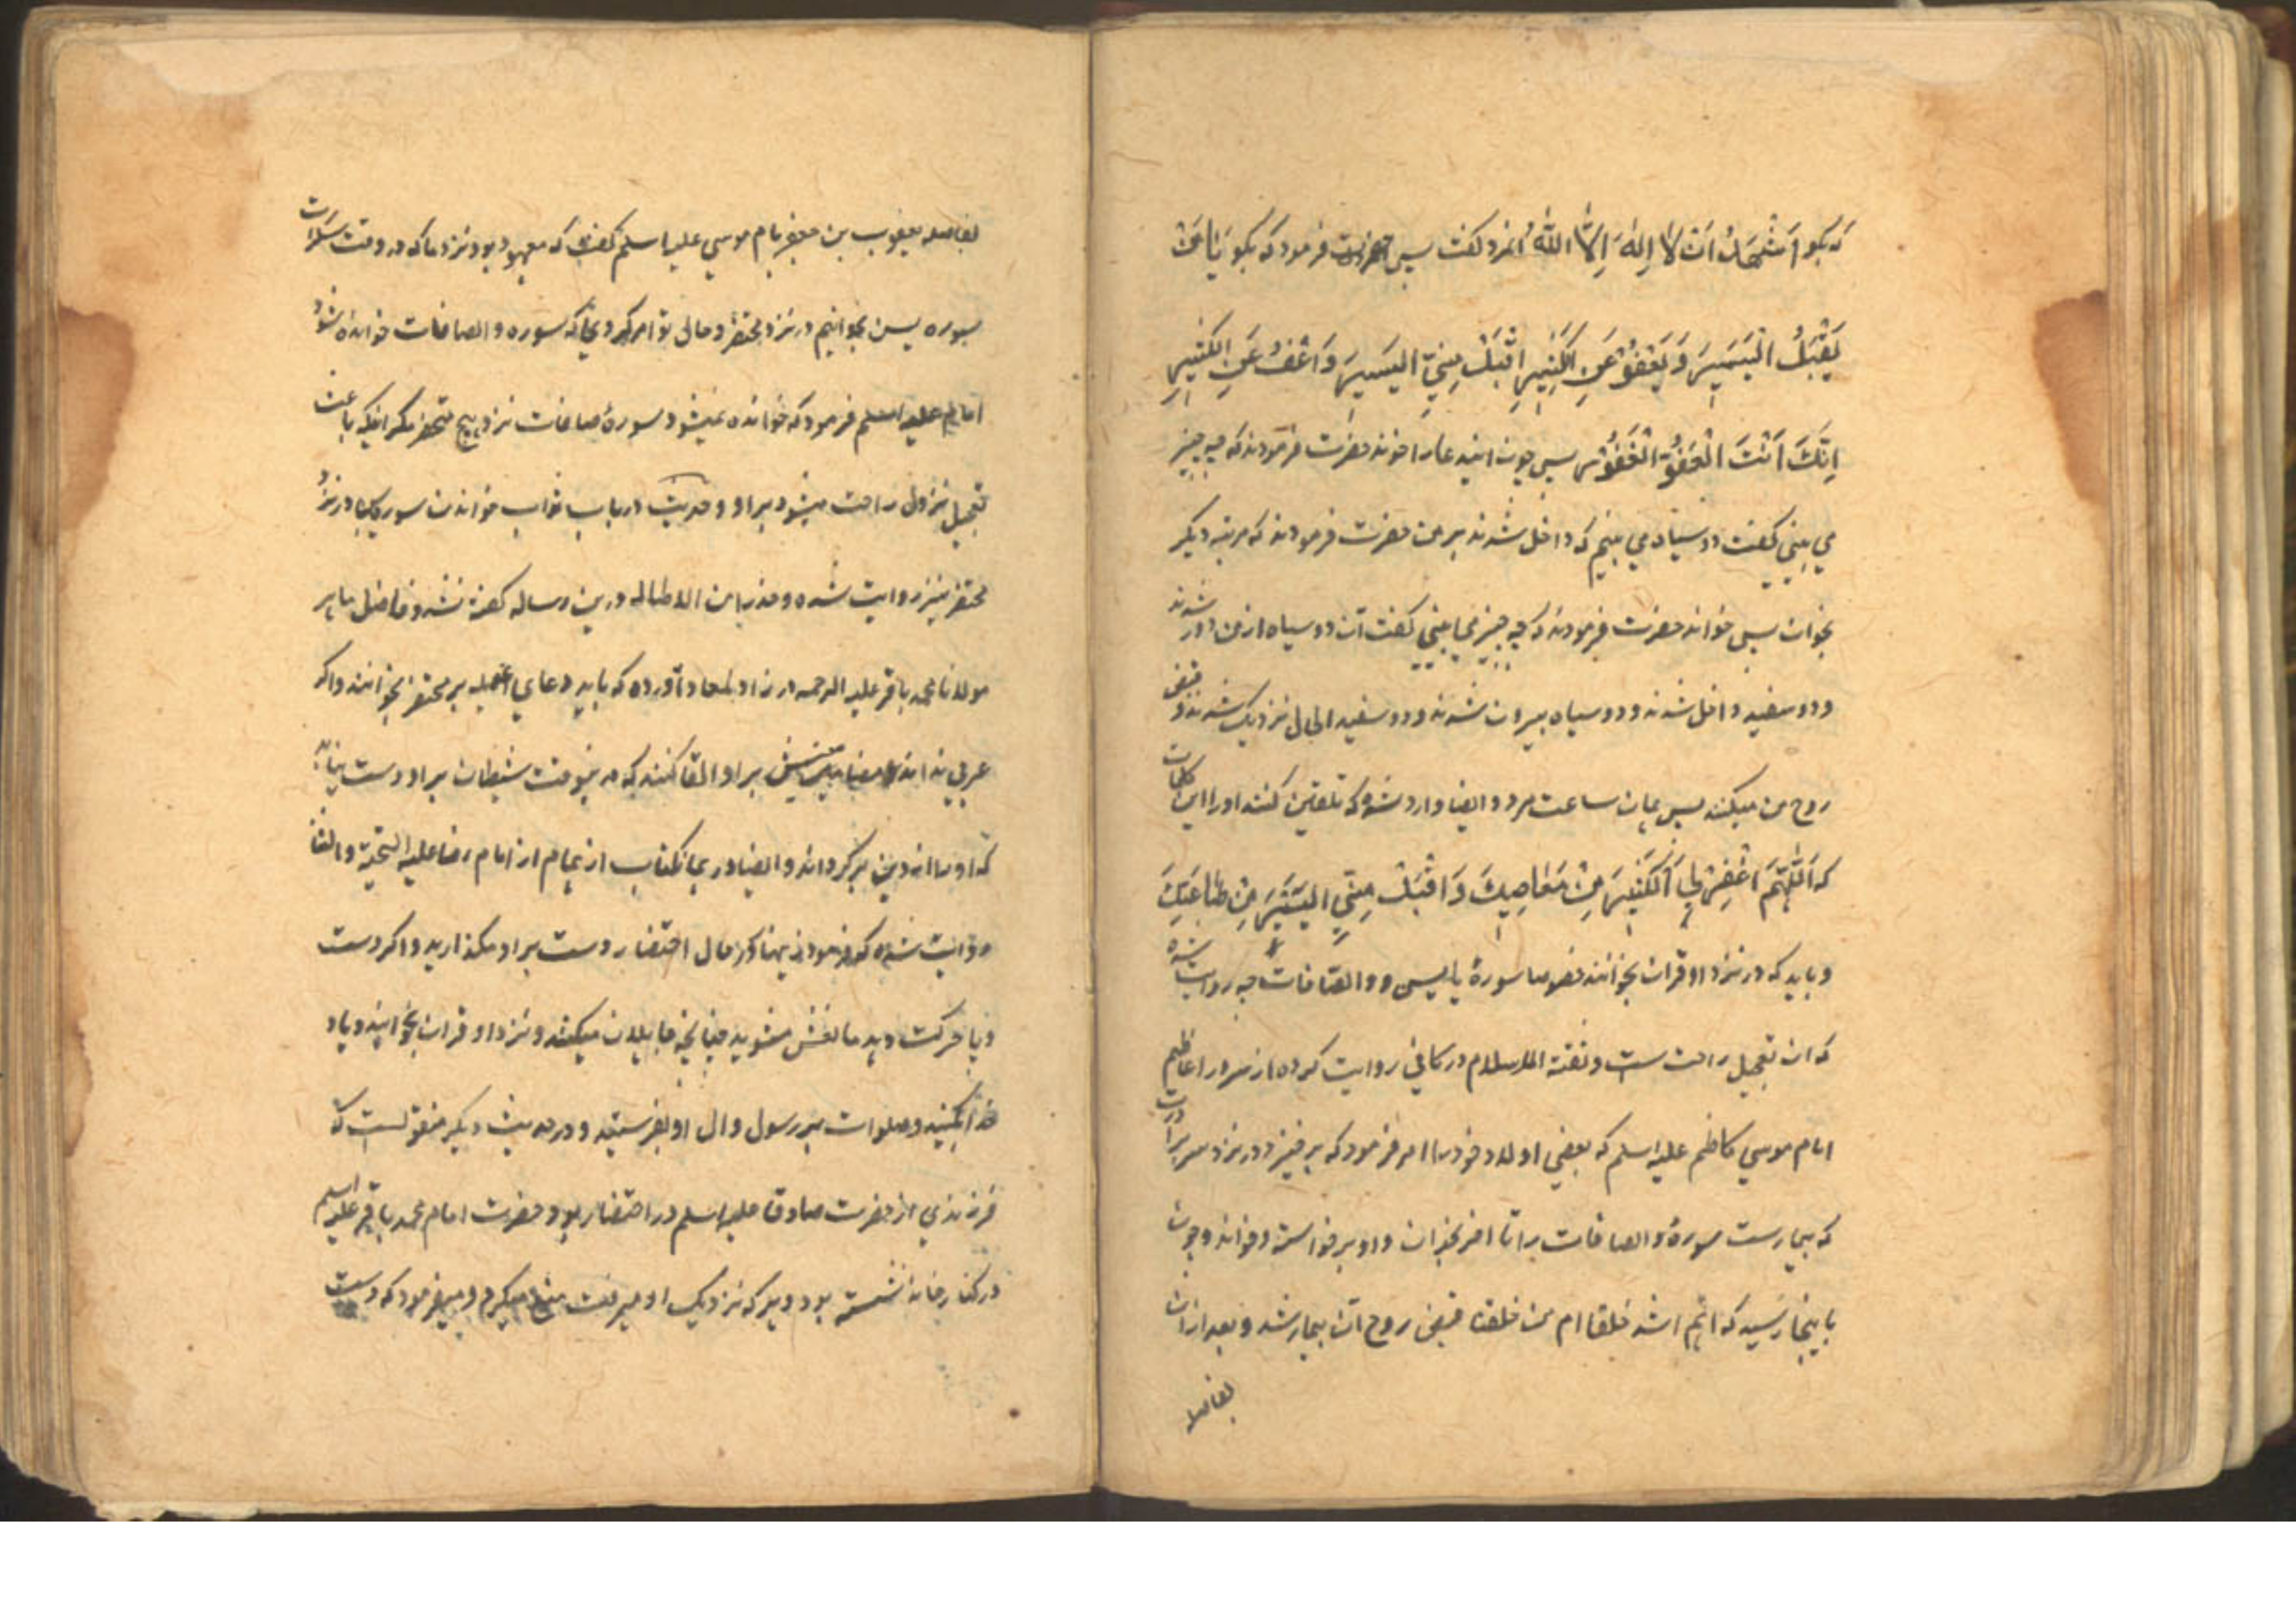 که بکو اَشْهَدُ اَنْ لا اِلٰهَ اِلاَّ اللّٰهُ انمرد کفت پس حضرت فرمود که بکو یَا مَنْ
یَقْبَلُ الْیَسِیرَ وَ یَعْفُوْ عَنِ الْکَثِیرِ اِقْبَلْ مِنِّی الیَسِیرَ وَ اعْفُ عَنِ الکَثِیرِ
اِنَّکَ اَنْتَ الْعَفُوُّ الْغَفُوْرُ پس چون ایندعا را خوند حضرت فرمودند که چه چیز
می بینی کفت دو سیاه می بینم که داخل شدند بر من حضرت فرمودند که مرتبه دیکر
بخوان پس خواند حضرت فرمودند که چه چیز می بینی کفت آن دو سیاه از من دور شدند
و دو سفید داخل شدند و دو سیاه بیرون شدند و دو سفید الحال نزدیک شدند و قبض
روح من میکنند پس بهمان ساعت مرد و ایضا وارد شده که تلقین کنند او را این کلمات
که اَللّٰهُمَّ اغْفِرْ لِیَ الْکَثِیرَ مِنْ مَعَاصِیکَ وَ اقْبَلْ مِنِّی الیَسِیرَ مِنْ طَاعَتِکَ
و باید که در نزد او قران بخوانند خصوصا سورهٔ یاسین و والصافات چه روایت شده
که ان تعجیل راحت ست و ثقة الاسلام در کافی روایت کرده از سرور اعاظم
امام موسی کاظم علیه اسلم که بعضی اولاد خود را امر فرمود که برخیز و در نزد سر برادرت
که بیمارست سورهٔ والصافات را تا اخر بخوان و او برخواسته و خواند و چون
باینجا رسید که اهم اشد خلقا ام من خلقنا قبض روح آن بیمار شد و بعد از ان
بفاصله
بفاصله یعقوب بن جعفر بامام موسی علیه اسلم کفت که معهود بود نزد ما که در وقت سکرات
سوره یسن بخوانیم در نزد محتضر و حالی تو امر کردی که سوره والصافات خوانده شود
امام علیه اسلم فرمود که خوانده نمیشود سورهٔ صافات نزد هیچ محتضر مکر اینکه باعث
تعجیل نزول راحت میشود بر او و حدیث در باب ثواب خواندن سوره یس در نزد
محتضر نیز روایت شده و حذرا من الاطاله درین رساله کفته نشد و فاضل ماهر
مولانا محمد باقر علیه الرحمه در زاد المعاد آورده که باید دعای عدیله بر محتضر بخوانند و اکر
عربی نداند مضامینش بر او القا کنند که در ینوقت شیطان بر او دست نیابد
که او را از دین برکرداند و ایضا در همان کتاب از امام رضا علیه التحیة والثنا
روایت شده که فرمودند در حال احتضار دست بر او مکذارید و اکر دست
و پا حرکت دهد مانعش مشوید چنانچه جاهلان میکنند و نزد او قران بخوانید و یاد
خدا بکنید و صلوات بر رسول و ال او بفرستید و در حدیث دیکر منقولست که
فرزندی از حضرت صادق علیه اسلم در احتضار بود و حضرت امام محمد باقر علیه اسلم
در کنار خانه نشسته بود و هر که نزدیک او میرفت منع میکرد و میفرمود که دست